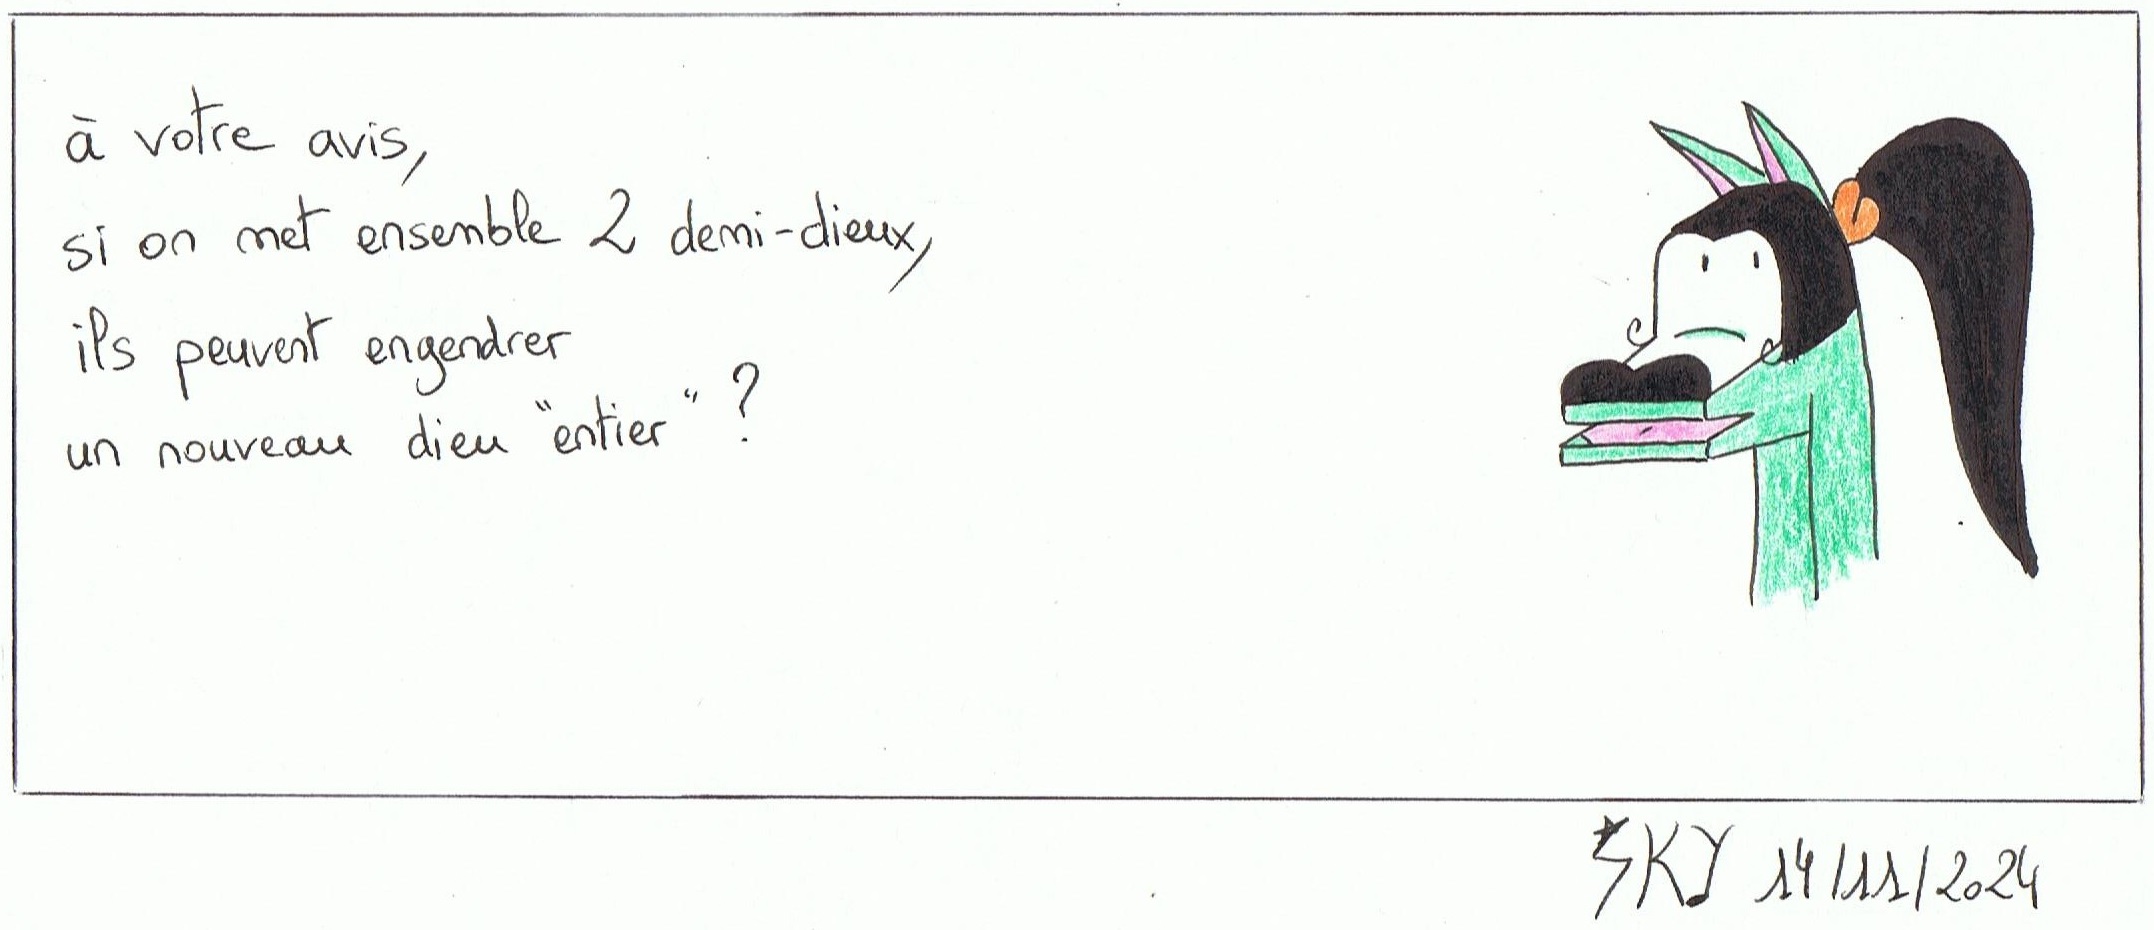 à votre avis,
si on met ensemble 2 demi-dieux,
ils peuvent engendrer
un nouveau dieu "entier" ?
SKY 14/11/2024